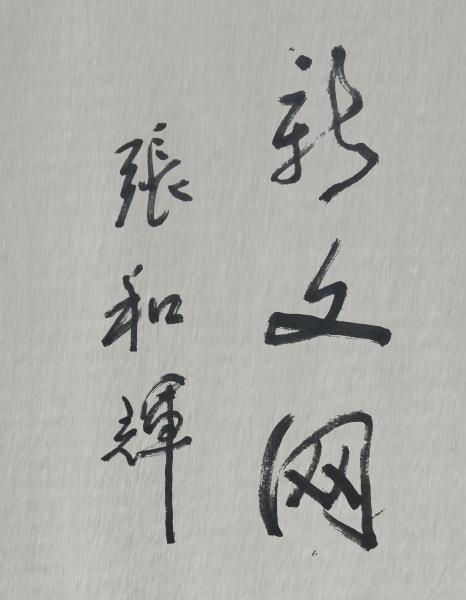 新文网
張和輝